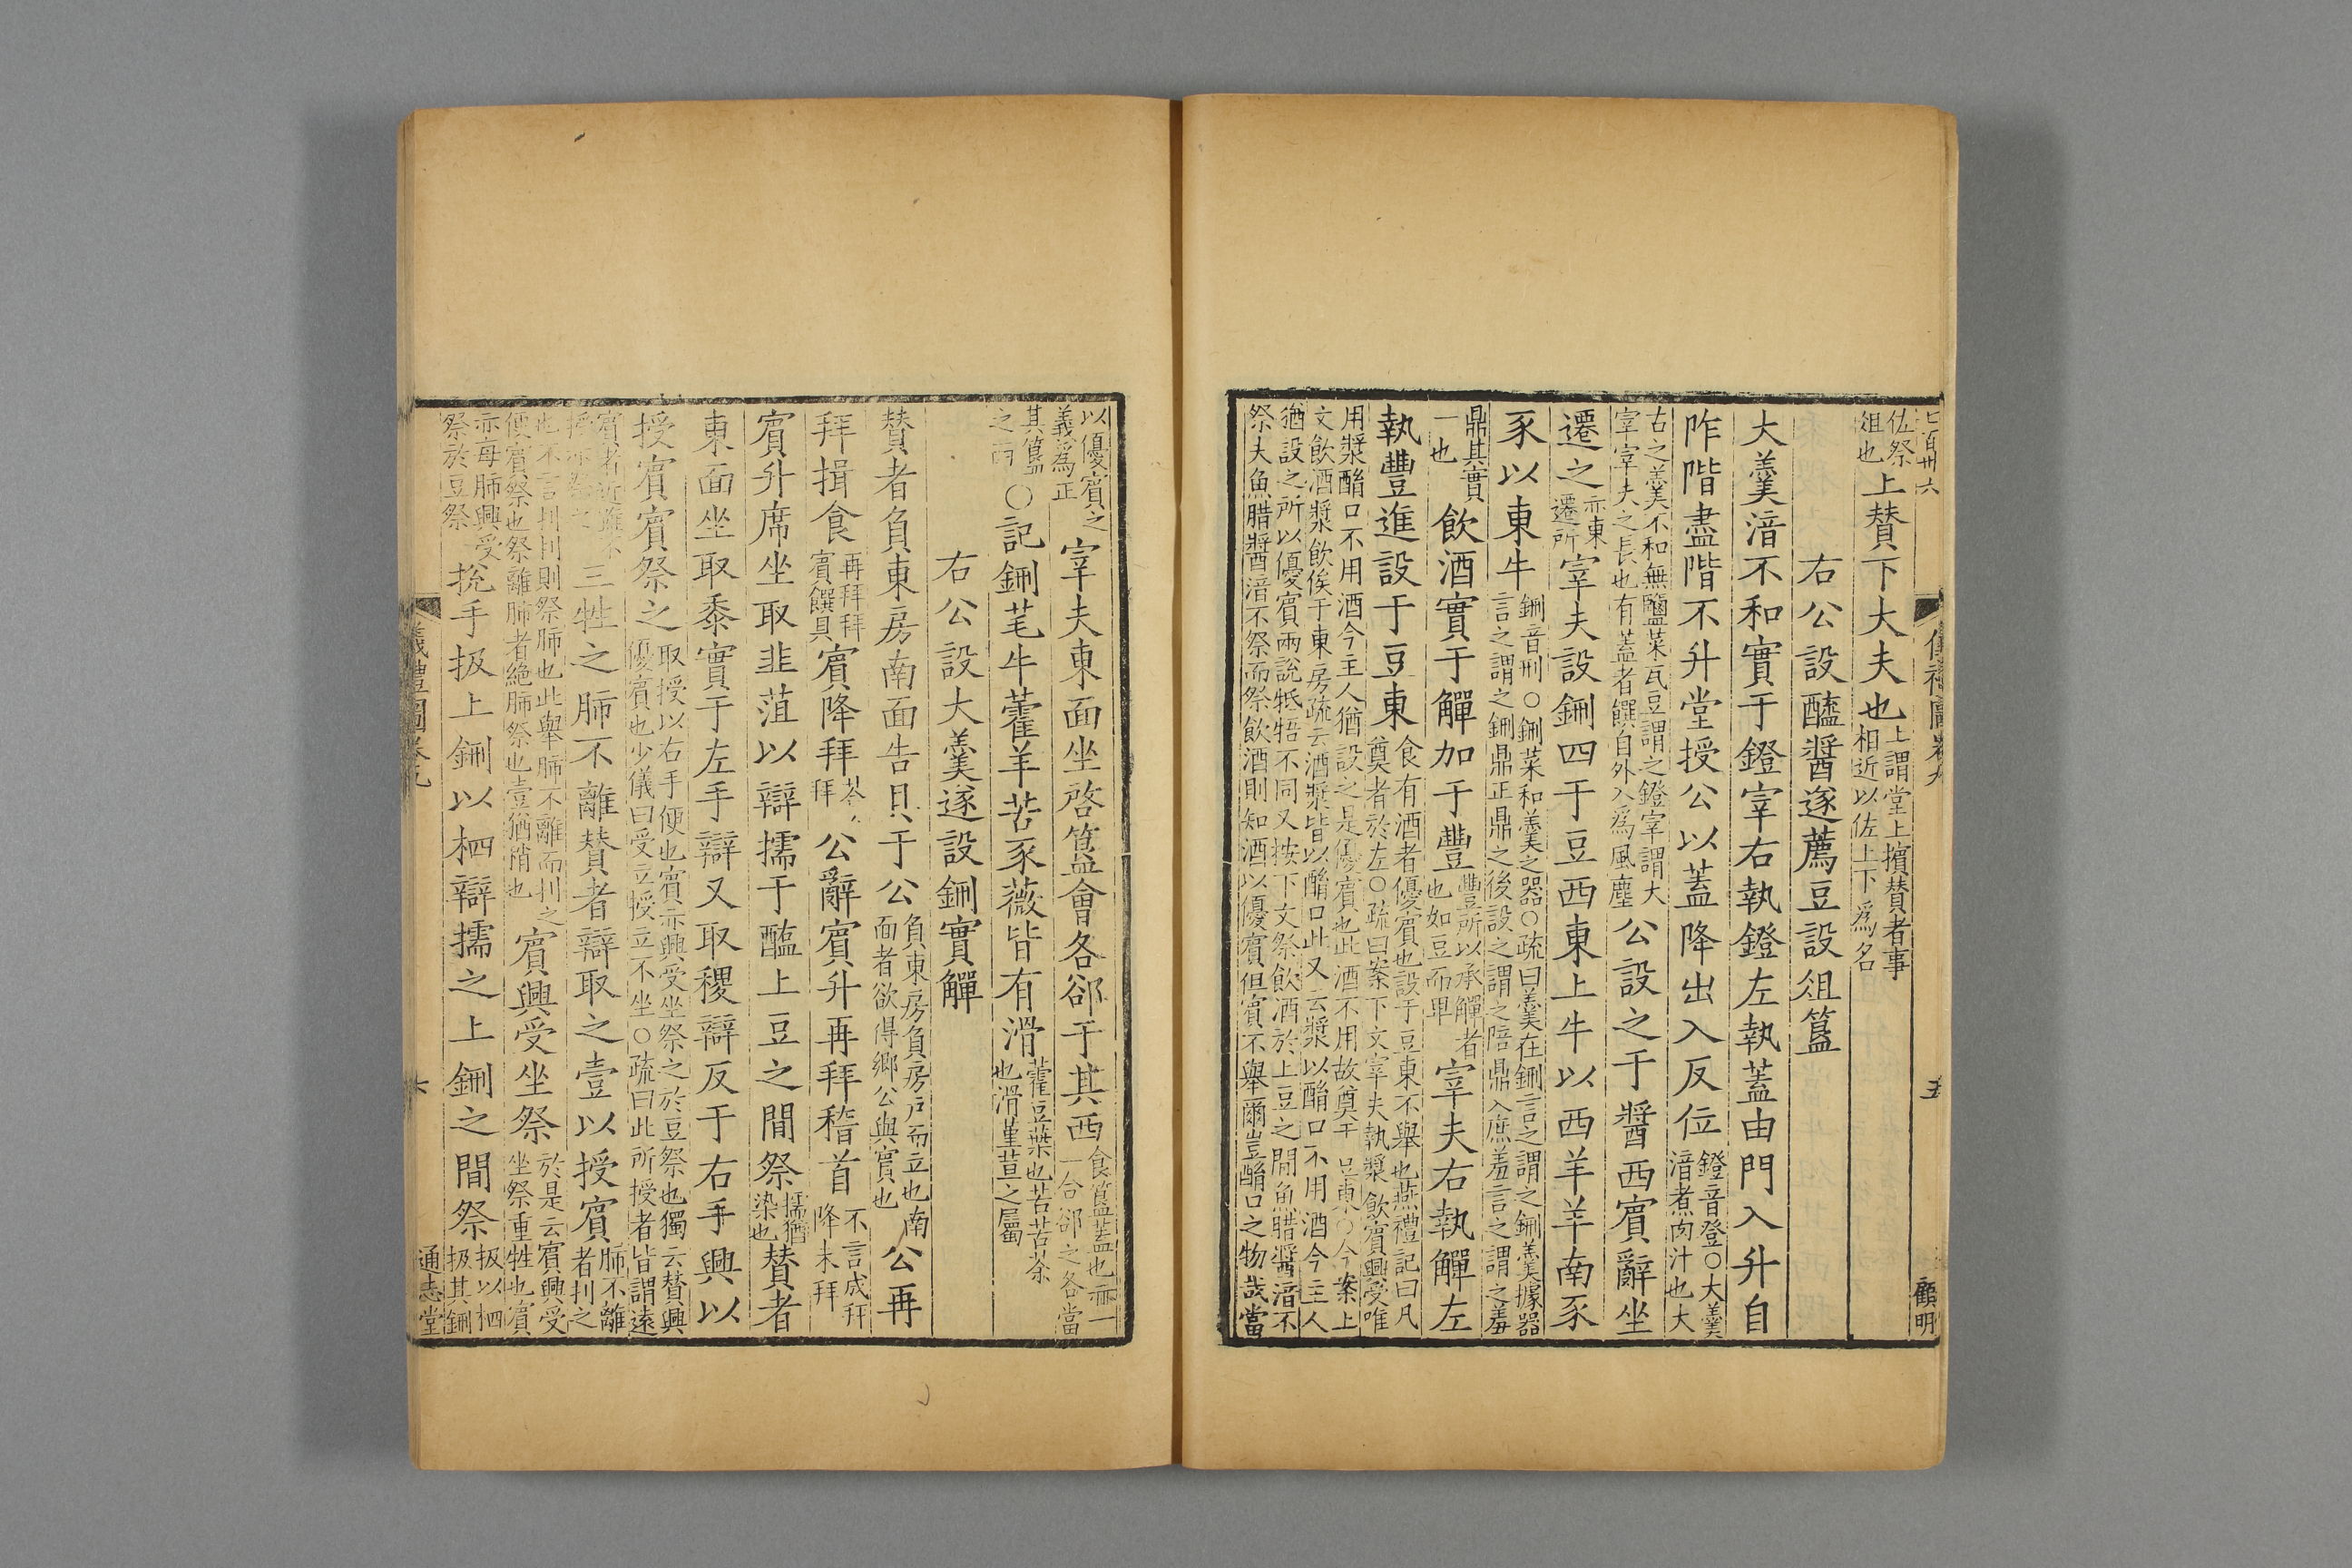 七百卅六
儀禮圖卷九
五
顧明
佐祭俎也上贊下大夫也上謂堂上擯贊者事相近以佐上下為名
右公設醯醬遂薦豆設俎簋
大羹湆不和實于鐙宰右執鐙左執蓋由門入升自
阼階盡階不升堂授公以蓋降出入反位鐙音登○大羹湆煮肉汁也大
古之羹不和無鹽菜瓦豆謂之鐙宰謂大宰宰夫之長也有蓋者饌自外入為風塵公設之于醬西賓辭坐
遷之亦東遷所宰夫設鉶四于豆西東上牛以西羊羊南豕
豕以東牛鉶音刑○鉶菜和羹之器○疏曰羹在鉶言之謂之鉶羹據器言之謂之鉶鼎正鼎之後設之謂之陪鼎入庶羞言之謂之羞
鼎其實一也飲酒實于觶加于豐豐所以承觶者也如豆而卑宰夫右執觶左
執豐進設于豆東食有酒者優賓也設于豆東不舉也燕禮記曰凡奠者於左○疏曰案下文宰夫執漿飲賓興受唯
用漿酳口不用酒今主人猶設之是優賓也此酒不用故奠于豆東○今案上文飲酒漿飲俟于東房疏云酒漿皆以酳口此又云漿以酳口不用酒今主人
猶設之所以優賓兩說牴牾不同又按下文祭飲酒於上豆之閒魚腊醬湆不祭夫魚腊醬湆不祭而祭飲酒則知酒以優賓但賓不舉爾豈酳口之物哉當
以優賓之義為正宰夫東面坐啓簋會各卻于其西食簋蓋也亦一一合卻之各當
其簋之西○記鉶芼牛藿羊苦豕薇皆有滑藿豆葉也苦苦荼也滑堇荁之屬
右公設大羹遂設鉶實觶
贊者負東房南面告具于公負東房負房戶而立也南面者欲得鄉公與賓也公再
拜揖食再拜拜賓饌具賓降拜荅拜公辭賓升再拜稽首不言成拜降未拜
賓升席坐取韭菹以辯擩于醢上豆之閒祭擩猶染也贊者
東面坐取黍實于左手辯又取稷辯反于右手興以
授賓賓祭之取授以右手便也賓亦興受坐祭之於豆祭也獨云贊興優賓也少儀曰受立授立不坐○疏曰此所授者皆謂遠
三牲之肺不離贊者辯取之壹以授賓肺不離者刌之
也不言刌刌則祭肺也此舉肺不離而刌之便賓祭也祭離肺者絕肺祭也壹猶稍也賓興受坐祭於是云賓興受坐祭重牲也賓
亦每肺興受祭於豆祭挩手扱上鉶以柶辯擩之上鉶之閒祭扱以柶扱其鉶
儀禮圖卷九
六
通志堂